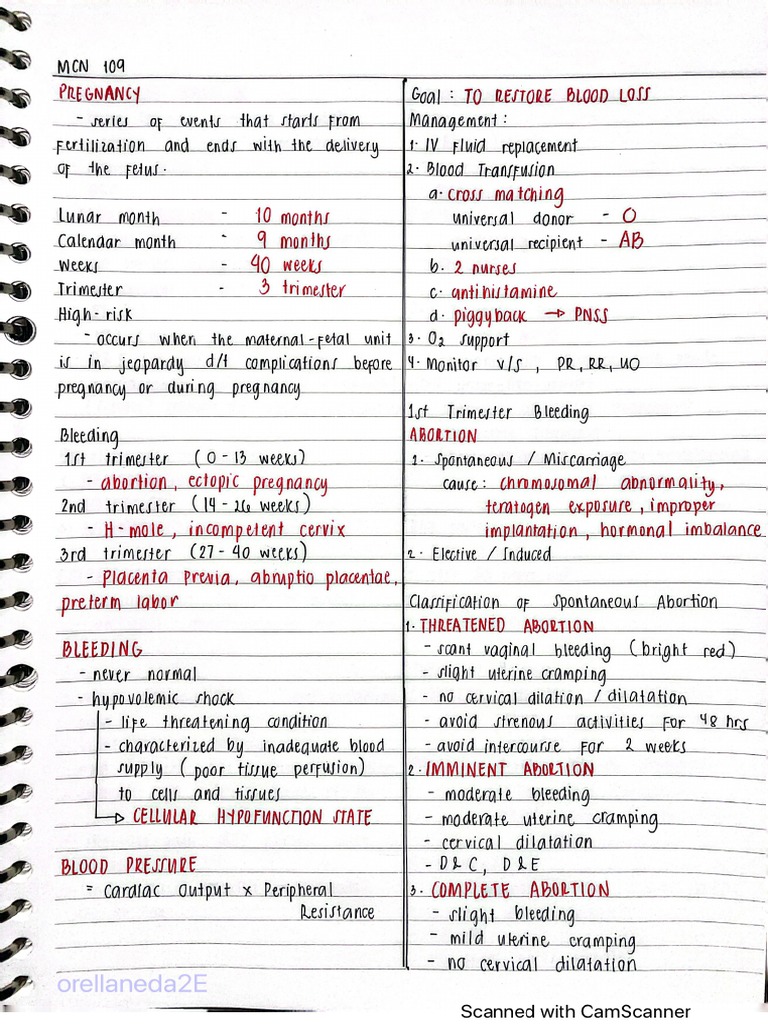 MCN 109
PREGNANCY
- series of events that starts from
fertilization and ends with the delivery
of the fetus.
Lunar month - 10 months
Calendar month - 9 months
Weeks - 40 weeks
Trimester - 3 trimester
High-risk
- occurs when the maternal-fetal unit
is in jeopardy d/t complications before
pregnancy or during pregnancy
Bleeding
1st trimester (0-13 weeks)
- abortion, ectopic pregnancy
2nd trimester (14-26 weeks)
- H-mole, incompetent cervix
3rd trimester (27-40 weeks)
- Placenta Previa, abruptio placentae,
preterm labor
BLEEDING
- never normal
- hypovolemic shock
- life threatening condition
- characterized by inadequate blood
supply (poor tissue perfusion)
to cells and tissues
→ CELLULAR HYPOFUNCTION STATE
BLOOD PRESSURE
= Cardiac Output x Peripheral
Resistance
Goal : TO RESTORE BLOOD LOSS
Management :
1. IV Fluid replacement
2. Blood Transfusion
a. cross matching
universal donor - O
universal recipient - AB
b. 2 nurses
c. antihistamine
d. piggyback → PNSS
3. O2 support
4. Monitor v/s, PR, RR, UO
1st Trimester Bleeding
ABORTION
1. Spontaneous / Miscarriage
cause: chromosomal abnormality,
teratogen exposure, improper
implantation, hormonal imbalance
2. Elective / Induced
Classification of Spontaneous Abortion
1. THREATENED ABORTION
- scant vaginal bleeding (bright red)
- slight uterine cramping
- no cervical dilation / dilatation
- avoid strenous activities for 48 hrs
- avoid intercourse for 2 weeks
2. IMMINENT ABORTION
- moderate bleeding
- moderate uterine cramping
- cervical dilatation
- D&C, D&E
3. COMPLETE ABORTION
- slight bleeding
- mild uterine cramping
- no cervical dilatation
orellaneda2E
Scanned with CamScanner